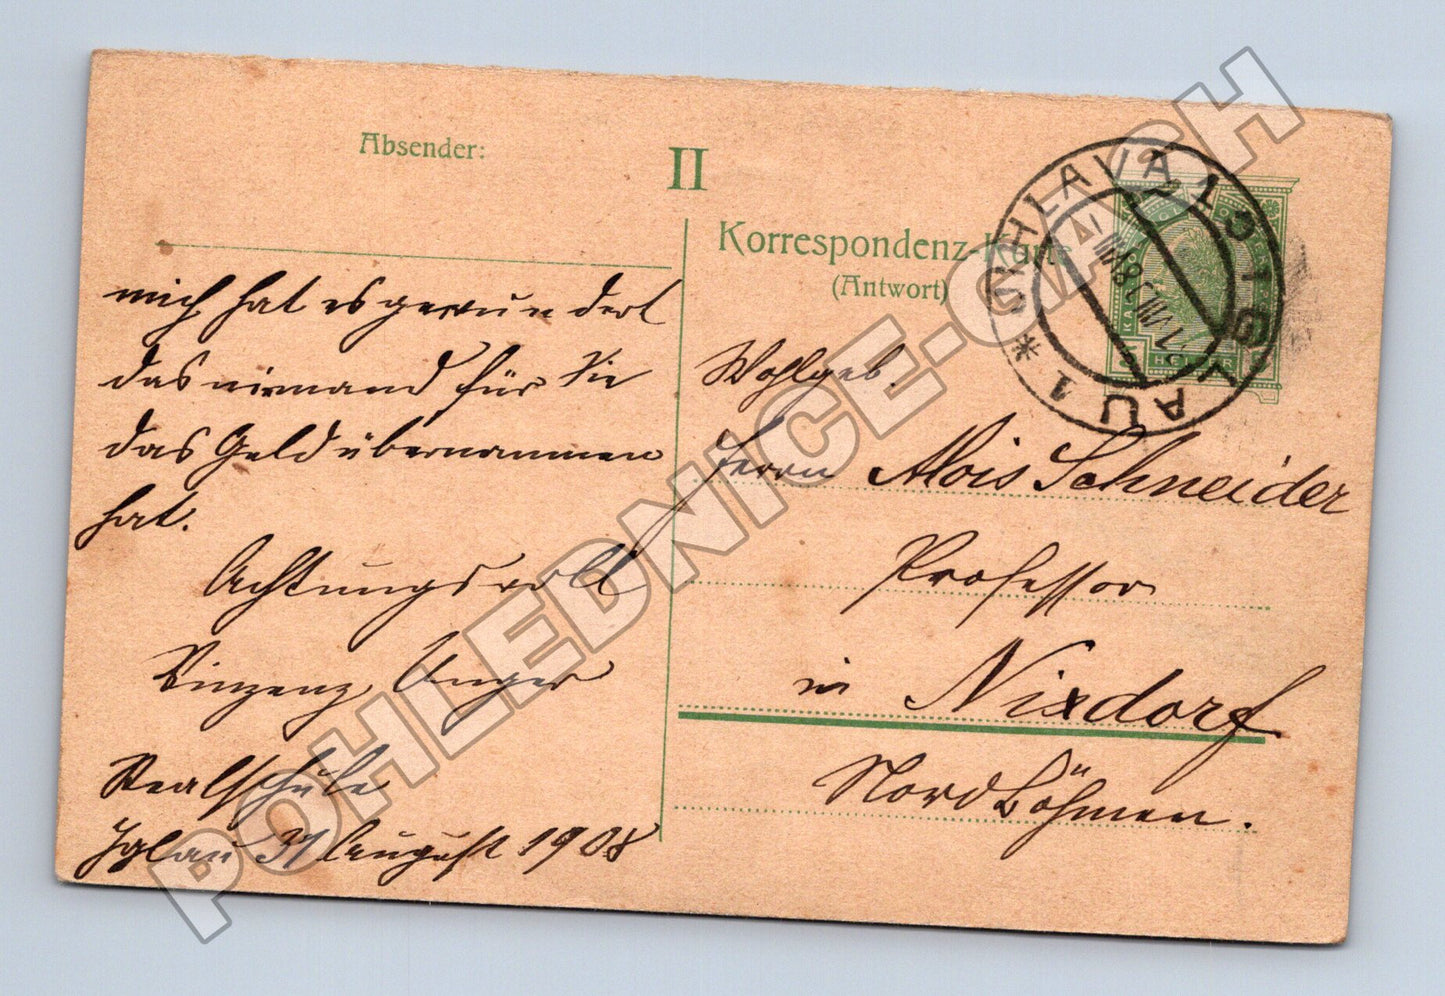 Absender:
II
Korrespondenz-Karte
(Antwort)
mich hat es gewundert
das niemand für Sie
das Geld übernommen
hat.
Achtungsvoll
Vinzenz Unger
Realschule
Iglau 31 August 1908
Wohlgeb.
Herrn Alois Schneider
Professor
in Nixdorf
Nordböhmen.
JIHLAVA 1
IGLAU 1
HELLER
POHLEDNICE.CASH